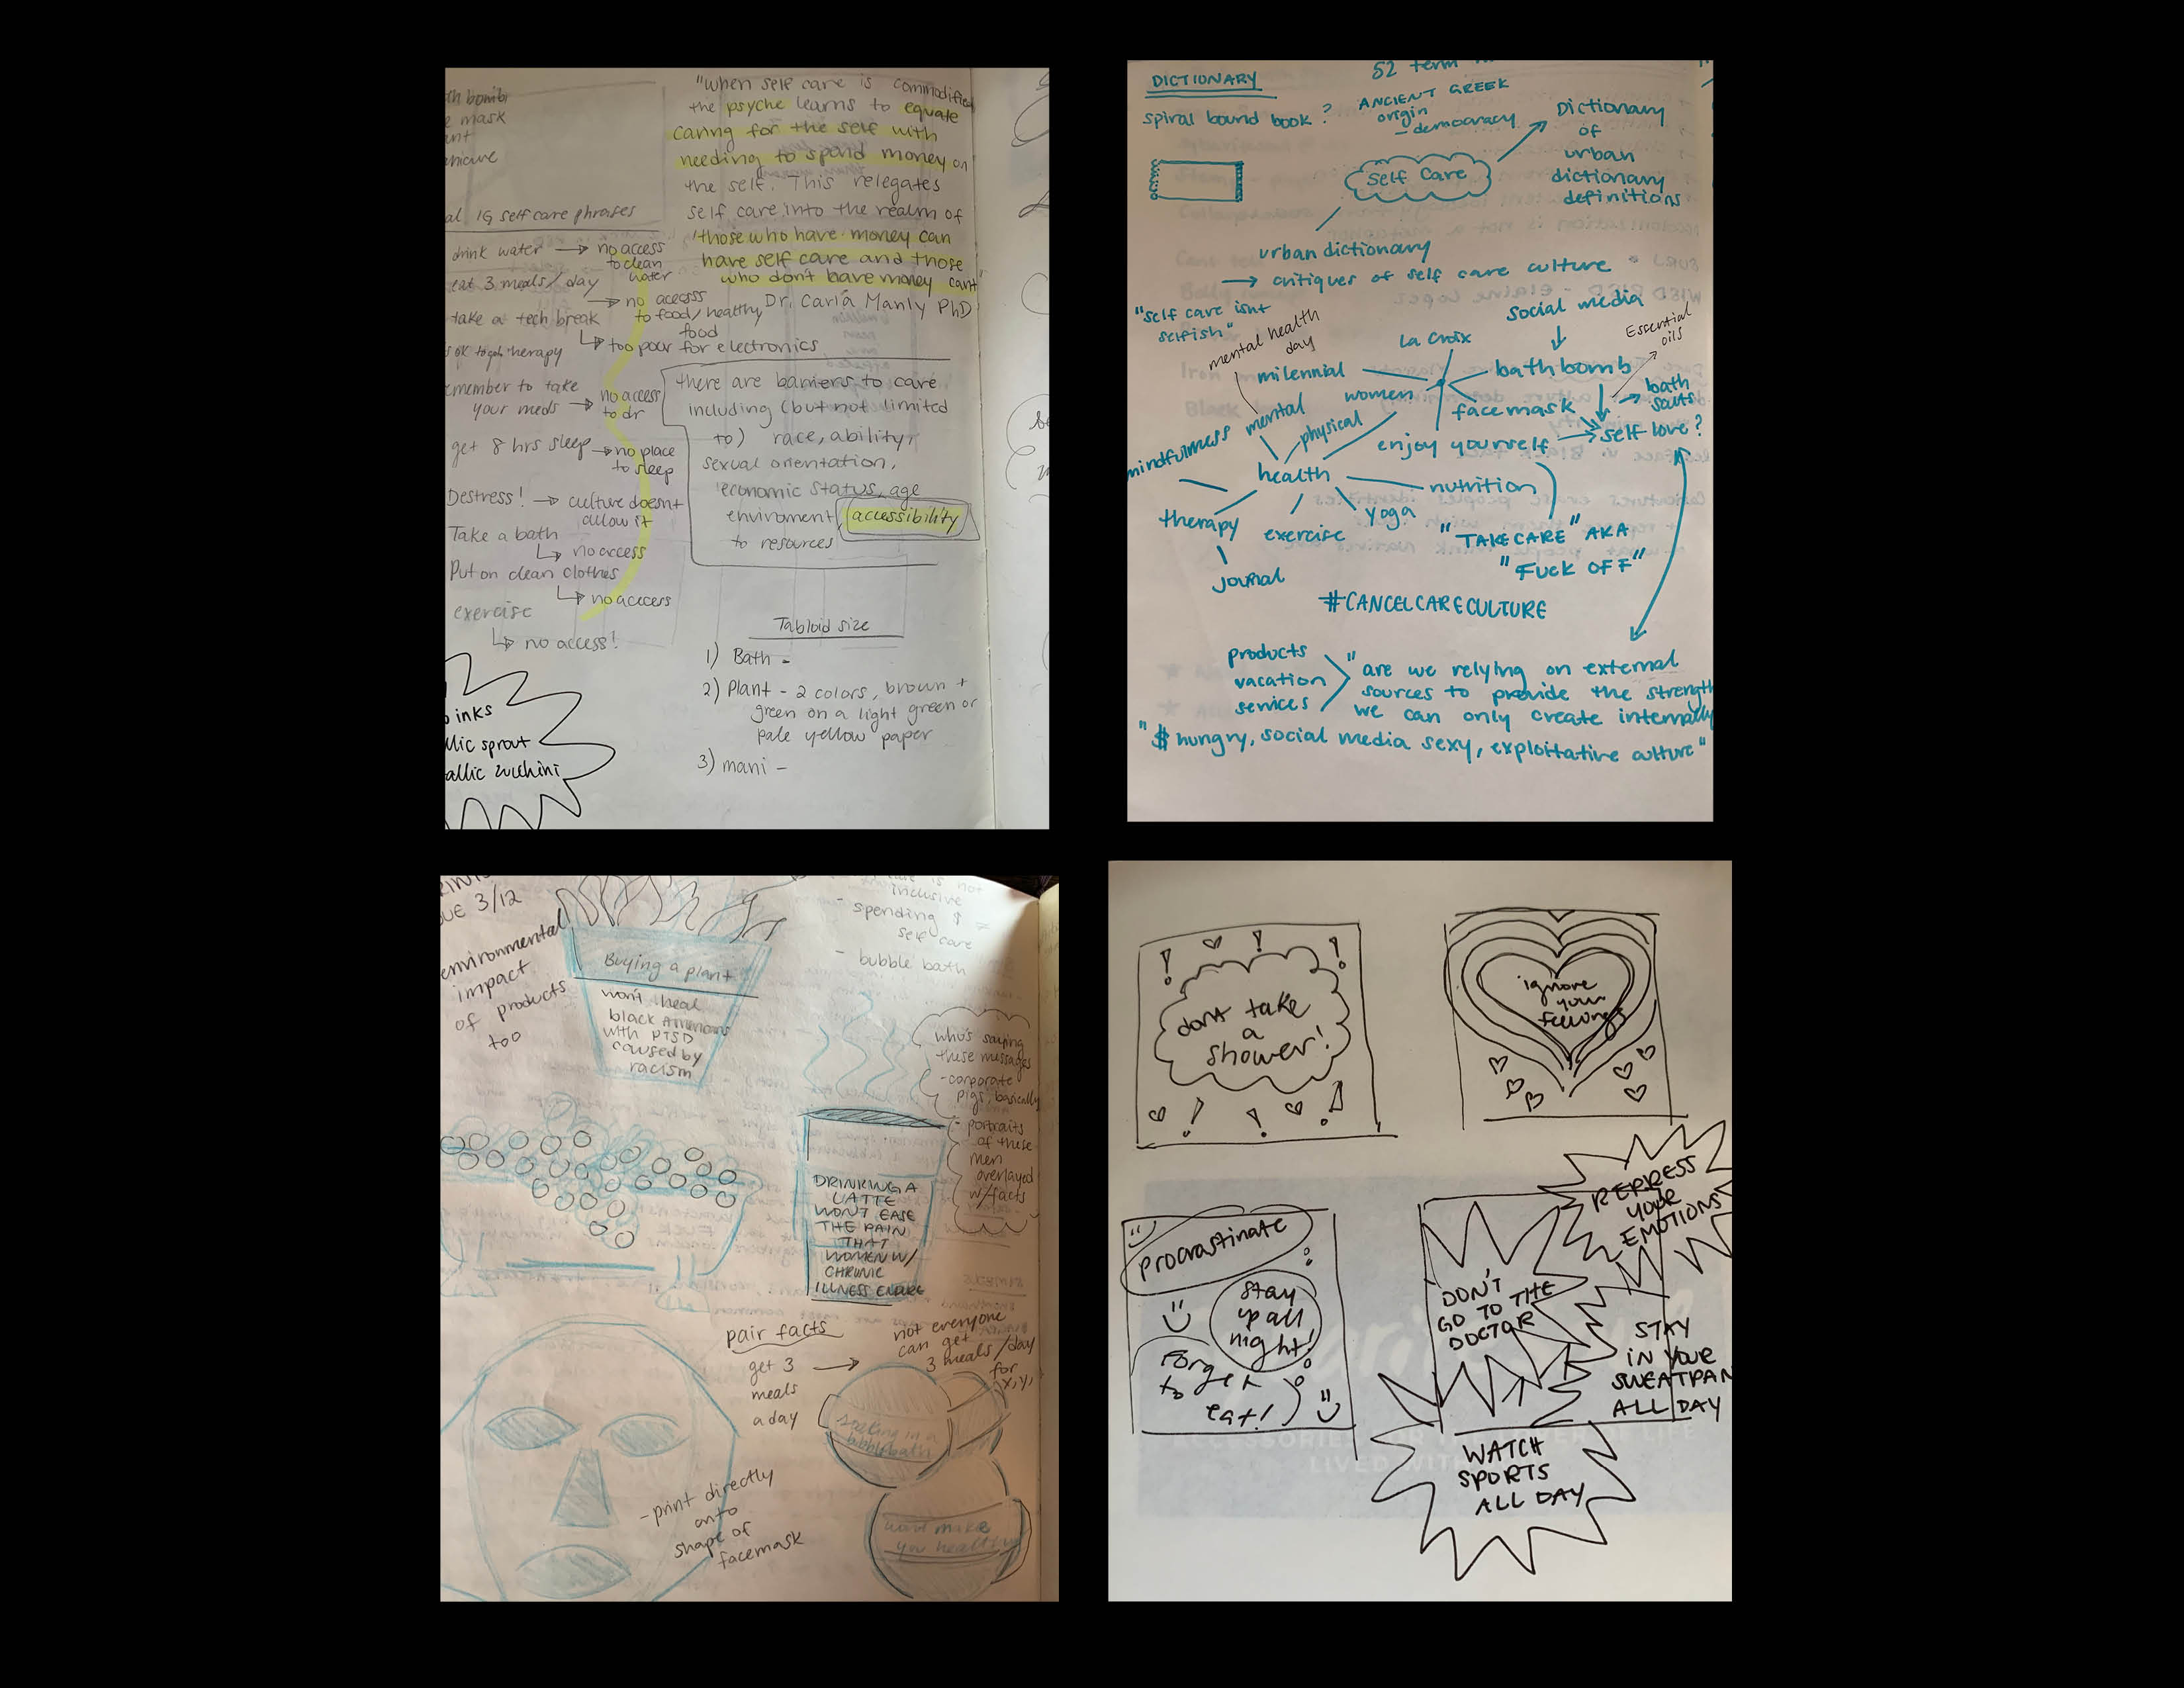 th bombs
e mask
ant
nicure
al IG self care phrases
drink water → no access
to clean
water
eat 3 meals/day
→ no acesss
to food/healthy
food
take a tech break
↳ too poor for electronics
s ok to go to therapy
emember to take
your meds → no access
to dr
get 8 hrs sleep → no place
to sleep
Destress! → culture doesnt
allow it
Take a bath
↳ no access
Put on clean clothes
↳ no acccess
exercise
↳ no access!
o inks
llic sprout
allic zucchini
"when self care is commodified
the psyche learns to equate
caring for the self with
needing to spend money on
the self. This relegates
self care into the realm of
'those who have money can
have self care and those
who don't have money cant"
Dr. Carla Manly PhD
there are barriers to care
including (but not limited
to) race, ability,
sexual orientation,
economic status, age
enviroment, accessibility
to resources
Tabloid size
1) Bath -
2) Plant - 2 colors, brown +
green on a light green or
pale yellow paper
3) mani -
DICTIONARY
52 term
spiral bound book?
ANCIENT GREEK
origin
- democracy
Dictionary
of
urban
dictionary
definitions
self care
urban dictionary
→ critiques of self care culture
"self care isnt
selfish"
mental health
day
social media
Essential
oils
La Croix
milennial
women
bath bomb
bath
salts
face mask
mental
physical
enjoy yourself → self love?
mindfulness
health
nutrition
therapy
exercise
yoga
journal
"TAKE CARE" AKA
"FUCK OFF"
#CANCELCARECULTURE
products
vacation
services
"are we relying on external
sources to provide the strength
we can only create internally
"$ hungry, social media sexy, exploitative culture"
UE 3/12
environmental
impact
of products
too
Buying a plant
won't heal
black Americans
with PTSD
caused by
racism
is not
inclusive
- spending $ ≠
self care
- bubble bath
who's saying
these messages
- corporate
pigs, basically
- portraits
of these
men
overlayed
w/facts
DRINKING A
LATTE
WON'T EASE
THE PAIN
THAT
WOMEN W/
CHRONIC
ILLNESS ENDURE
pair facts
get 3 →
meals
a day
not everyone
can get
3 meals/day
for
x, y,
soaking in a
bubble bath
wont make
you healthy
- print directly
onto
shape of
facemask
dont take
a
shower!
ignore
your
feelings
procrastinate
stay
up all
night!
Forget
to
eat!
REPRESS
YOUR
EMOTIONS
DON'T
GO TO THE
DOCTOR
STAY
IN YOUR
SWEATPAN
ALL DAY
WATCH
SPORTS
ALL DAY